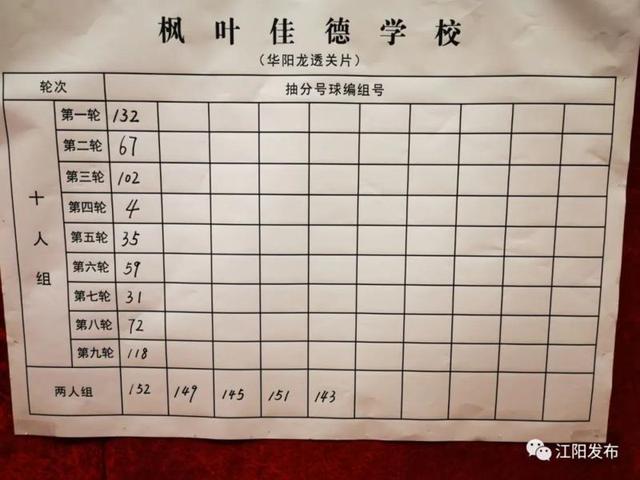 枫叶佳德学校
(华阳龙透关片)
轮次 抽分号球编组号
十人组
第一轮 132
第二轮 67
第三轮 102
第四轮 4
第五轮 35
第六轮 59
第七轮 31
第八轮 72
第九轮 118
两人组 152 149 145 151 143
江阳发布